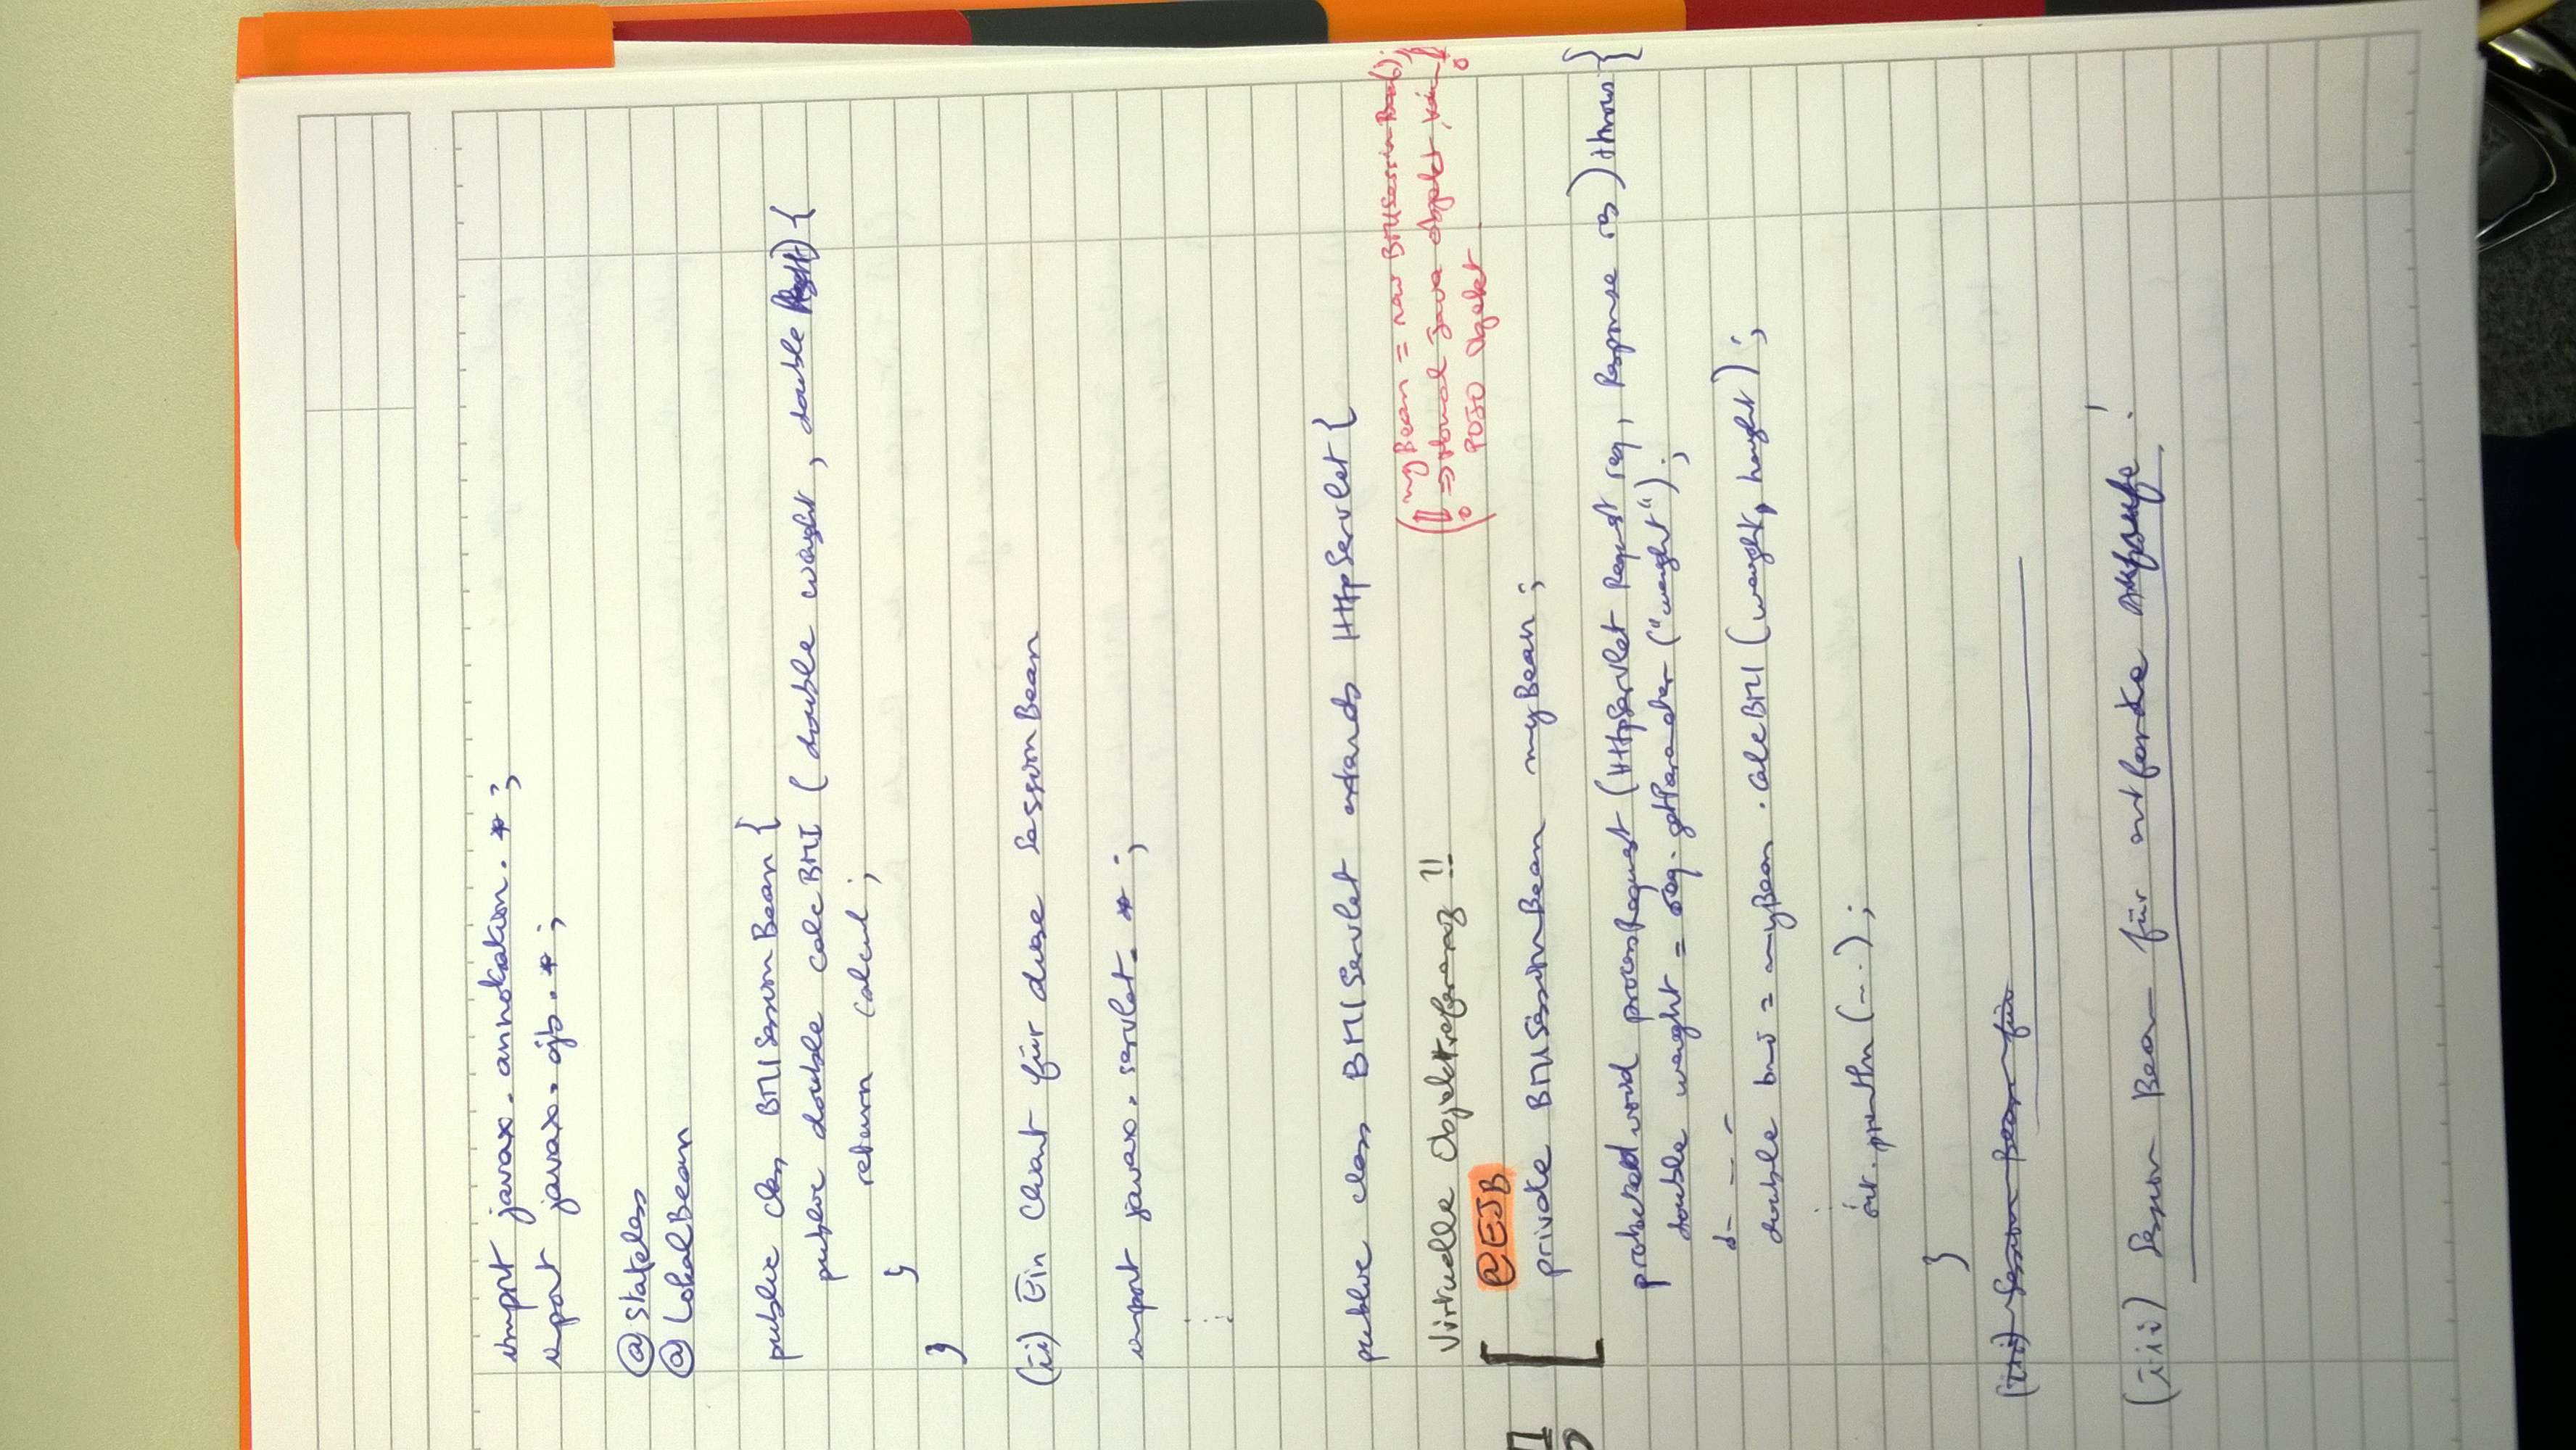 import javax.annotation.*;
import javax.ejb.*;
@Stateless
@LokalBean
public class BMISessionBean {
public double calcBMI (double weight, double
) {
return calcul;
}
}
(ii) Ein Client für diese SessionBean
import javax.servlet.*;
public class BMIServlet extends HttpServlet {
(!! myBean = new BMISessionBean();
=> normal Java Objekt, kein !!
POJO Objekt
Virtuelle Objektreferenz !!
@EJB
private BMISessionBean myBean;
protected void processRequest (HttpServlet Request req, Response rs) throws {}
double weight = req.getParameter ("weight");
double bmi = myBean.calcBMI (weight, height);
out.println (...);
}
(iii) Session Bean für
(iii) Session Bean für entfernte Aufrufe!